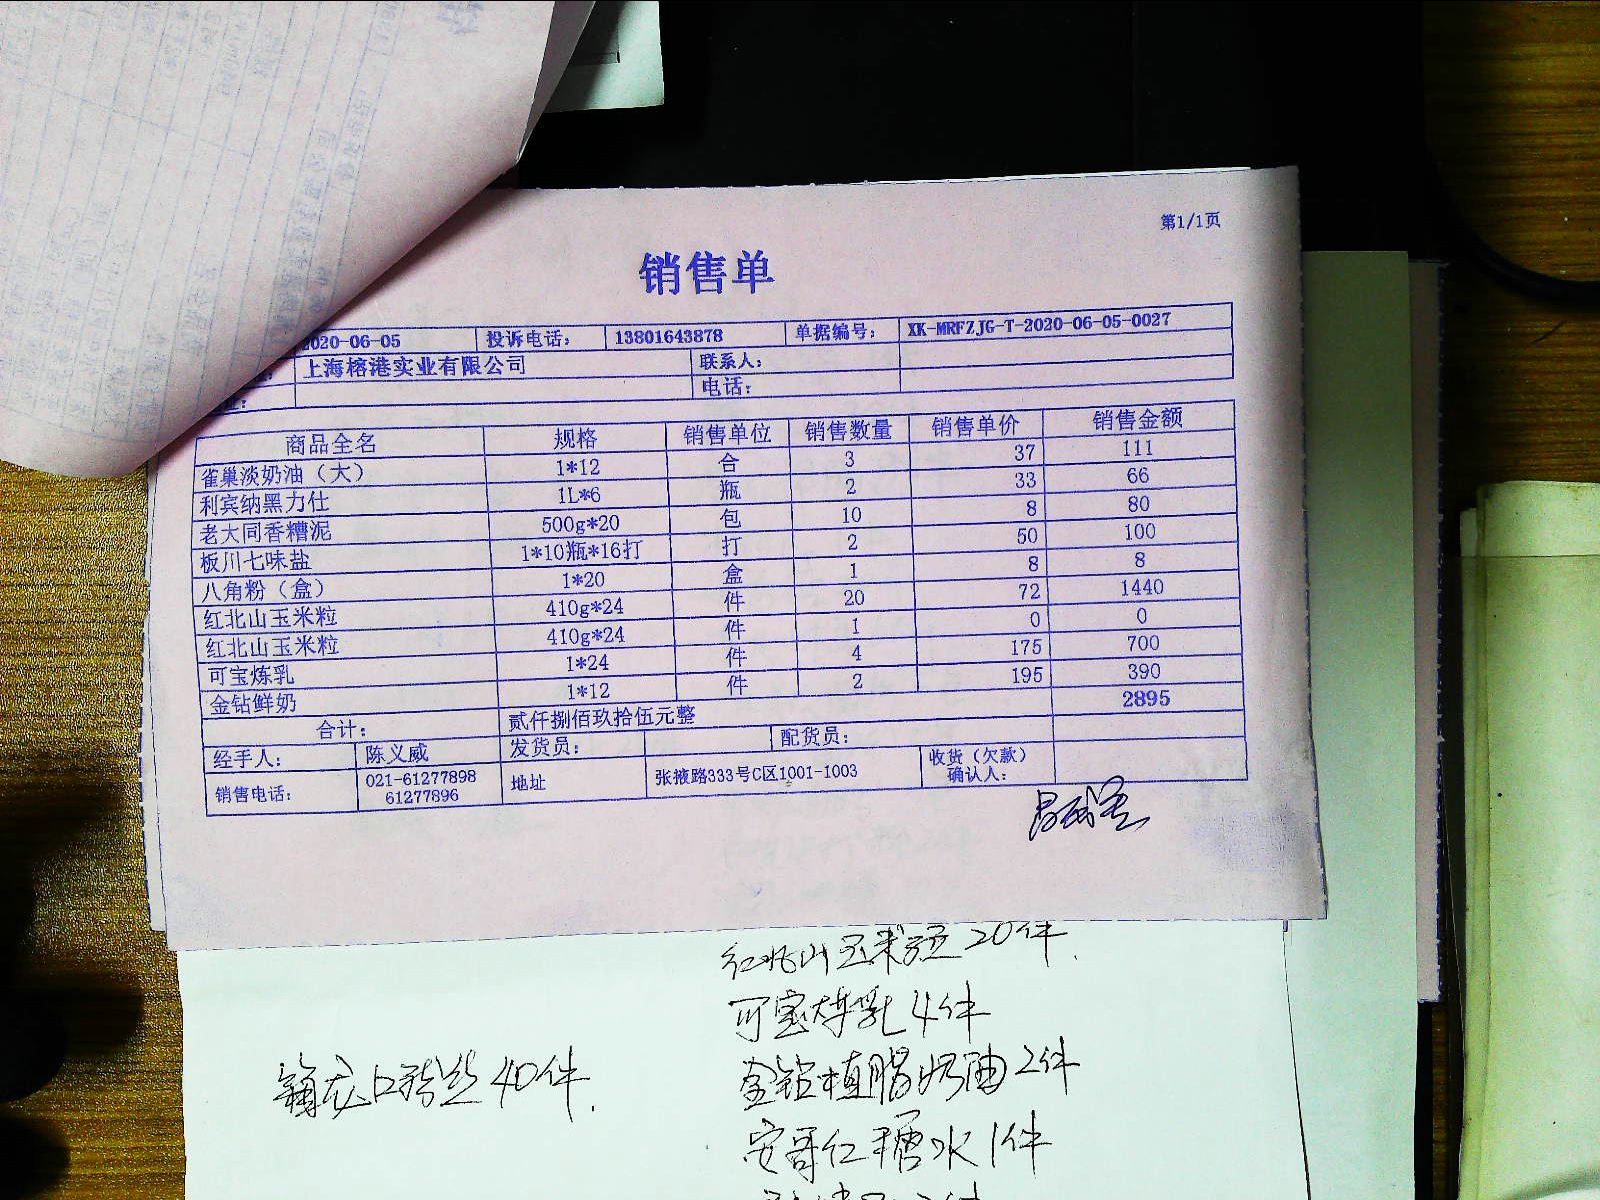 第1/1页
销售单
2020-06-05 投诉电话： 13801643878 单据编号： XK-MRFZJG-T-2020-06-05-0027
上海榕港实业有限公司 联系人：
电话：
商品全名 规格 销售单位 销售数量 销售单价 销售金额
雀巢淡奶油（大） 1*12 合 3 37 111
利宾纳黑力仕 1L*6 瓶 2 33 66
老大同香糟泥 500g*20 包 10 8 80
板川七味盐 1*10瓶*16打 打 2 50 100
八角粉（盒） 1*20 盒 1 8 8
红北山玉米粒 410g*24 件 20 72 1440
红北山玉米粒 410g*24 件 1 0 0
可宝炼乳 1*24 件 4 175 700
金钻鲜奶 1*12 件 2 195 390
合计： 贰仟捌佰玖拾伍元整 2895
经手人： 陈义威 发货员： 配货员：
销售电话： 021-61277898 61277896 地址 张掖路333号C区1001-1003 收货（欠款）确认人：
红北山玉米 20件.
可宝炼乳 4件
龙口粉丝 40件.
金钻植脂奶油 2件
安哥红糖水 1件